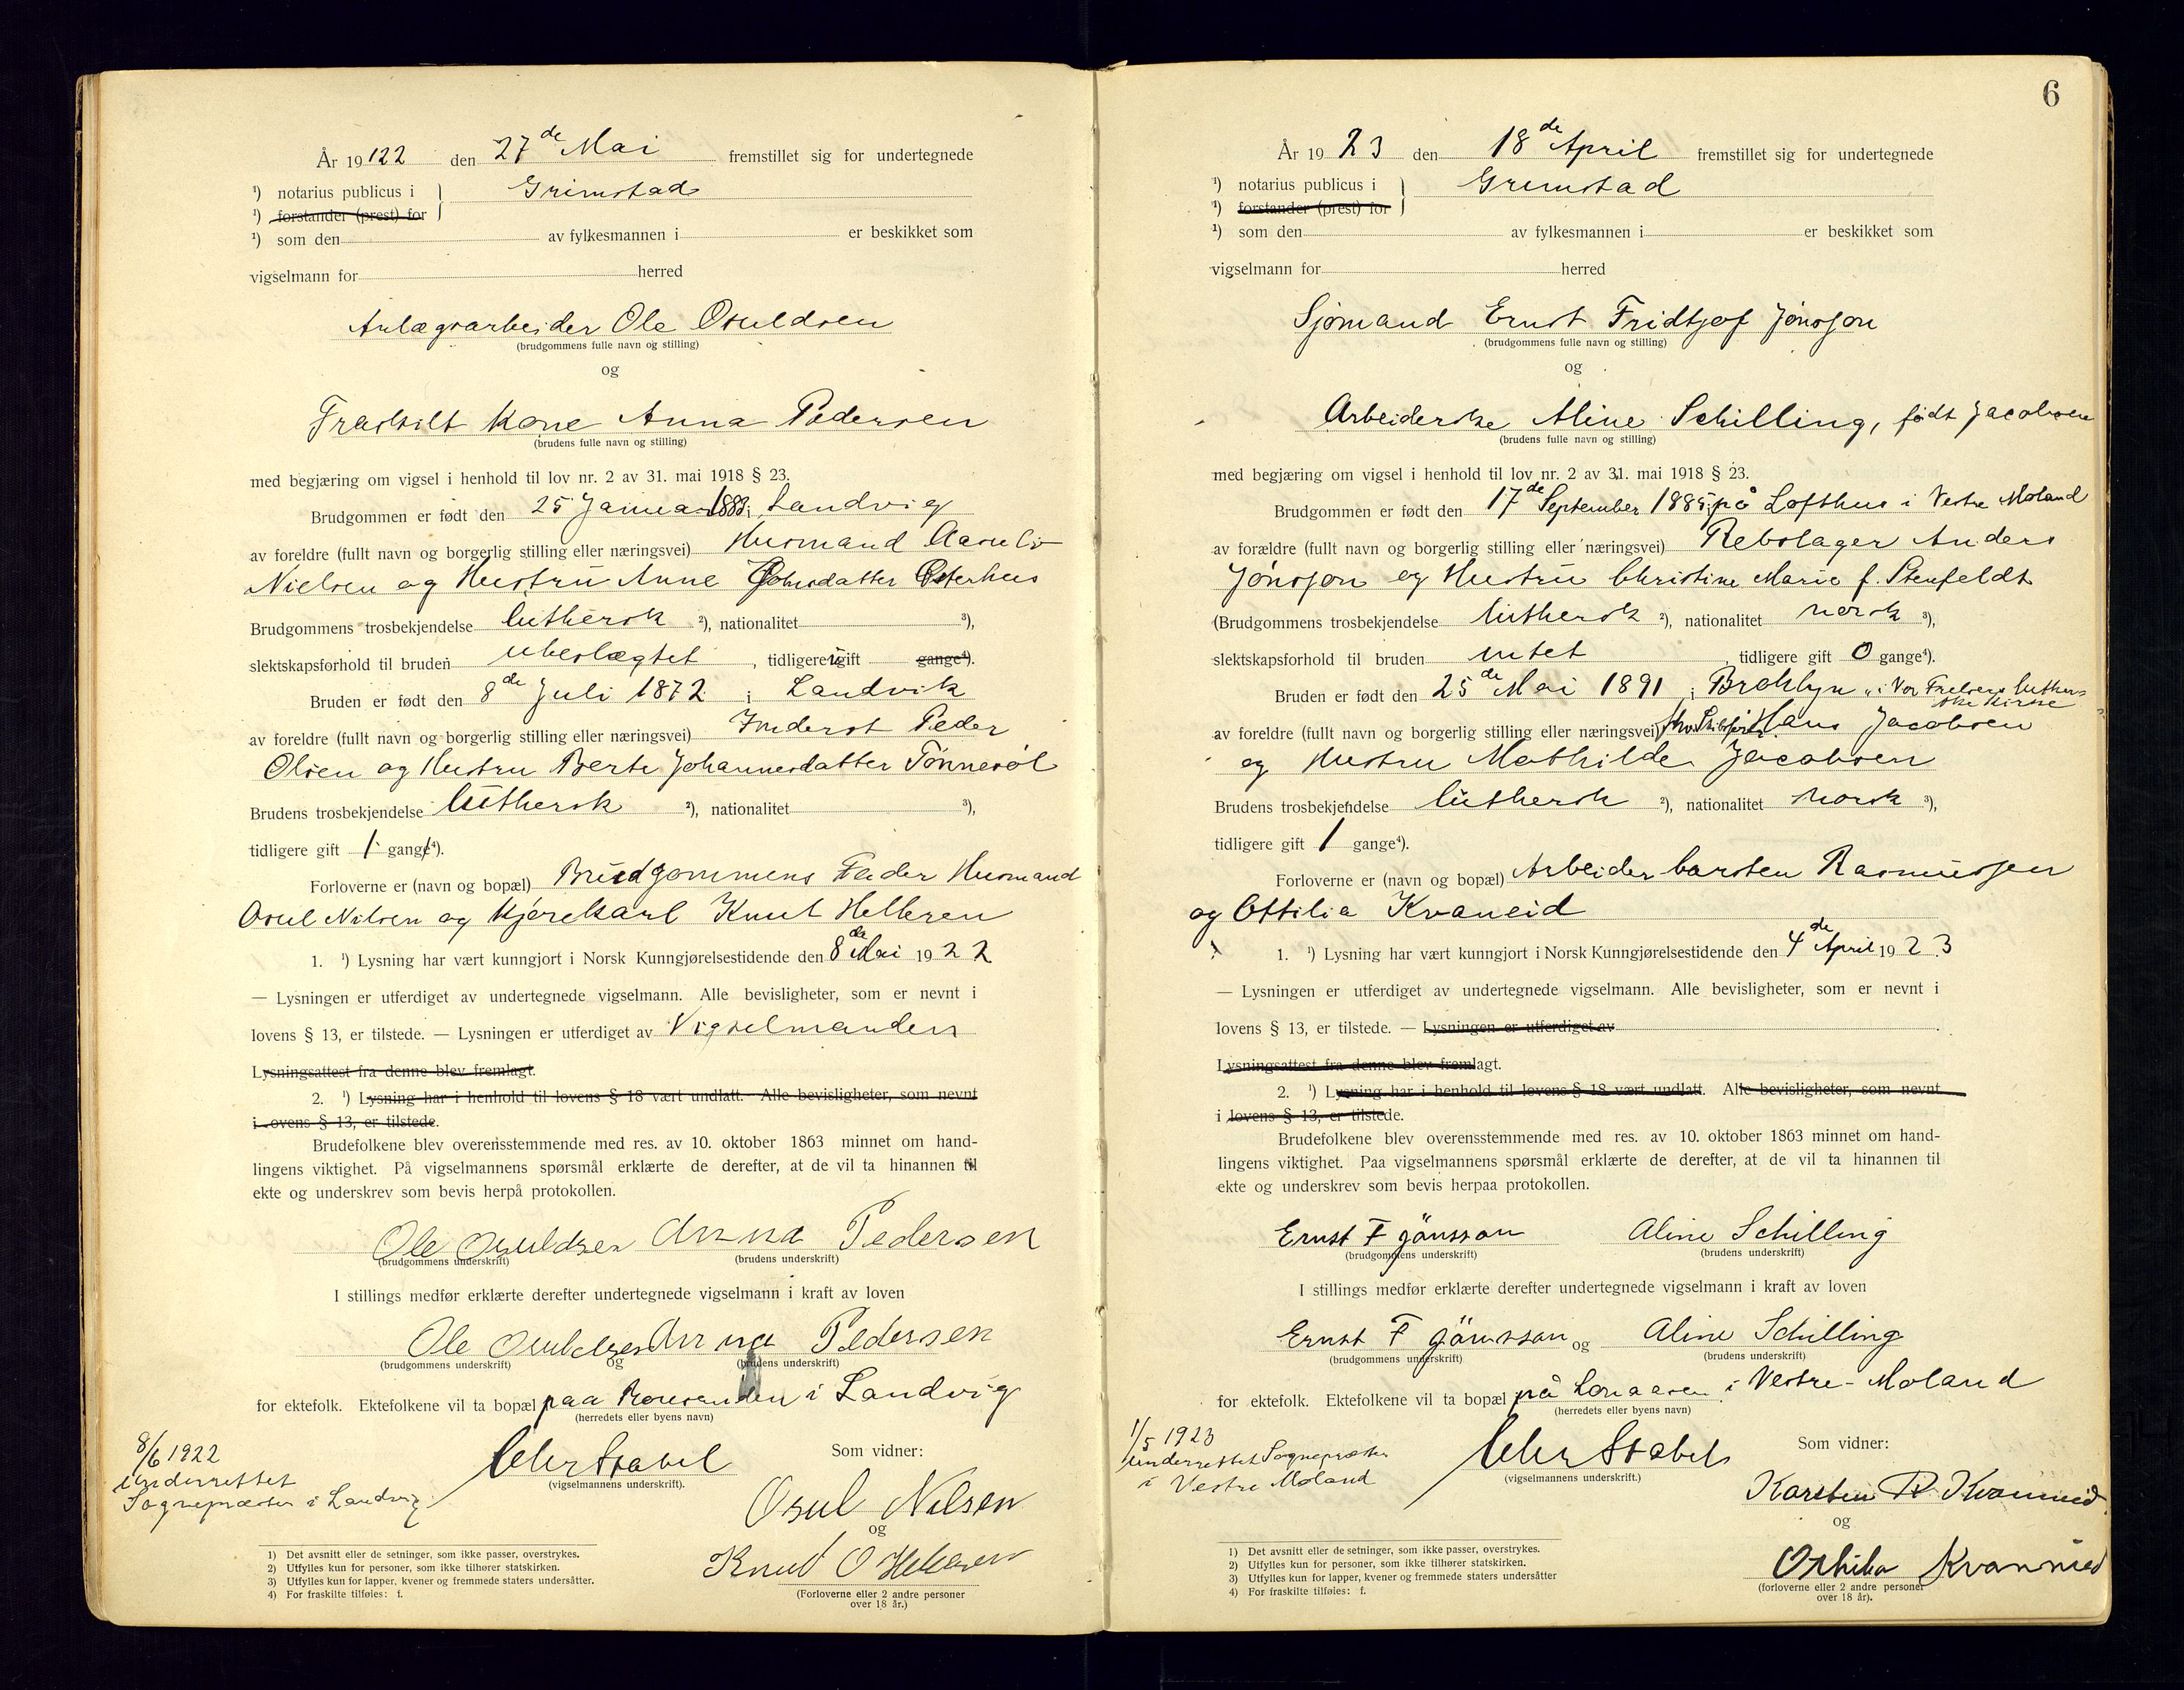 År 19122 den 27de Mai fremstillet sig for undertegnede
¹) notarius publicus i Grimstad
¹) forstander (prest) for
¹) som den av fylkesmannen i er beskikket som
vigselmann for herred
Anlægsarbeider Ole Osuldsen
(brudgommens fulle navn og stilling)
og
Fraskilt Kone Anna Pedersen
(brudens fulle navn og stilling)
med begjæring om vigsel i henhold til lov nr. 2 av 31. mai 1918 § 23.
Brudgommen er født den 25 Januar 1883 i Landvig
av foreldre (fullt navn og borgerlig stilling eller næringsvei) Husmand
Nielsen og Hustru Anne Johsdatter Østerhus
Brudgommens trosbekjendelse luthersk ²), nationalitet ³),
slektskapsforhold til bruden ubeslægtet , tidligere ugift gange⁴).
Bruden er født den 8de Juli 1872 i Landvik
av foreldre (fullt navn og borgerlig stilling eller næringsvei) Inderst Peder
Olsen og Hustru Berte Johannesdatter Tønnesøl
Brudens trosbekjendelse luthersk ²), nationalitet ³),
tidligere gift 1 gange⁴).
Forloverne er (navn og bopæl) Brudgommens Fader Husmand
Osul Nilsen og Kjørekarl Knut Helleren
1. ¹) Lysning har vært kunngjort i Norsk Kunngjørelsestidende den 8de Mai 1922
— Lysningen er utferdiget av undertegnede vigselmann. Alle bevisligheter, som er nevnt i
lovens § 13, er tilstede. — Lysningen er utferdiget av Vigselmanden
Lysningsattest fra denne blev fremlagt.
2. ¹) Lysning har i henhold til lovens § 18 vært undlatt. Alle bevisligheter, som nevnt
i lovens § 13, er tilstede.
Brudefolkene blev overensstemmende med res. av 10. oktober 1863 minnet om hand-
lingens viktighet. På vigselmannens spørsmål erklærte de derefter, at de vil ta hinannen til
ekte og underskrev som bevis herpå protokollen.
Ole Osuldsen Anna Pedersen
(brudgommens underskrift) (brudens underskrift)
I stillings medfør erklærte derefter undertegnede vigselmann i kraft av loven
Ole Osuldsen Anna Pedersen
(brudgommens underskrift) og (brudens underskrift)
for ektefolk. Ektefolkene vil ta bopæl paa i Landvig
(herredets eller byens navn)
8/6 1922
Underrettet
Sognepræsten i Landvig
Stabel
(vigselmannens underskrift).
Som vidner:
Osul Nilsen
og
Knud O Helleren
(Forloverne eller 2 andre personer
over 18 år.)
1) Det avsnitt eller de setninger, som ikke passer, overstrykes.
2) Utfylles kun for personer, som ikke tilhører statskirken.
3) Utfylles kun for lapper, kvener og fremmede staters undersåtter.
4) For fraskilte tilføies: f.
6
År 1923 den 18de April fremstillet sig for undertegnede
¹) notarius publicus i Grimstad
¹) forstander (prest) for
¹) som den av fylkesmannen i er beskikket som
vigselmann for herred
Sjømand Ernst Fridtjof Jönsson
(brudgommens fulle navn og stilling)
og
Arbeiderske Aline Schilling, født Jacobsen
(brudens fulle navn og stilling)
med begjæring om vigsel i henhold til lov nr. 2 av 31. mai 1918 § 23.
Brudgommen er født den 17de September 1885 på Lofthus i Vestre Moland
av forældre (fullt navn og borgerlig stilling eller næringsvei) Rebslager Anders
Jönsson og Hustru Christine Marie f. Stenfeldt
(Brudgommens trosbekjendelse luthersk ²), nationalitet norsk ³),
slektskapsforhold til bruden intet , tidligere gift 0 gange⁴).
Bruden er født den 25de Mai 1891 i Broklyn "i Vor Frelsers luther-
ske Kirke
av foreldre (fullt navn og borgerlig stilling eller næringsvei) Hans Jacobsen
og Hustru Mathilde Jacobsen
Brudens trosbekjendelse luthersk ²), nationalitet norsk ³),
tidligere gift 1 gange⁴).
Forloverne er (navn og bopæl) Arbeider Carsten Rasmussen
og Ottilia Kvaneid
1. ¹) Lysning har vært kunngjort i Norsk Kunngjørelsestidende den 4de April 1923
— Lysningen er utferdiget av undertegnede vigselmann. Alle bevisligheter, som er nevnt i
lovens § 13, er tilstede. — Lysningen er utferdiget av
Lysningsattest fra denne blev fremlagt.
2. ¹) Lysning har i henhold til lovens § 18 vært undlatt. Alle bevisligheter, som nevnt
i lovens § 13, er tilstede.
Brudefolkene blev overensstemmende med res. av 10. oktober 1863 minnet om hand-
lingens viktighet. Paa vigselmannens spørsmål erklærte de derefter, at de vil ta hinannen til
ekte og underskrev som bevis herpaa protokollen.
Ernst F Jönsson Aline Schilling
(brudgommens underskrift) (brudens underskrift)
I stillings medfør erklærte derefter undertegnede vigselmann i kraft av loven
Ernst F Jönsson og Aline Schilling
(brudgommens underskrift) (brudens underskrift)
for ektefolk. Ektefolkene vil ta bopæl på i Vestre-Moland
(herredets eller byens navn)
1/5 1923
underrettet Sognepræsten
i Vestre Moland
Stabel
(vigselmannens underskrift.)
Som vidner:
Karsten R Kvanneid
og
Othilia Kvanneid
(forloverne eller 2 andre personer
over 18 år).
1) Det avsnitt eller de setninger, som ikke passer, overstrykes.
2) Utfylles kun for personer, som ikke tilhører statskirken.
3) Utfylles kun for lapper, kvener og fremmede staters undersåtter
4) For fraskilte tilføies: f.